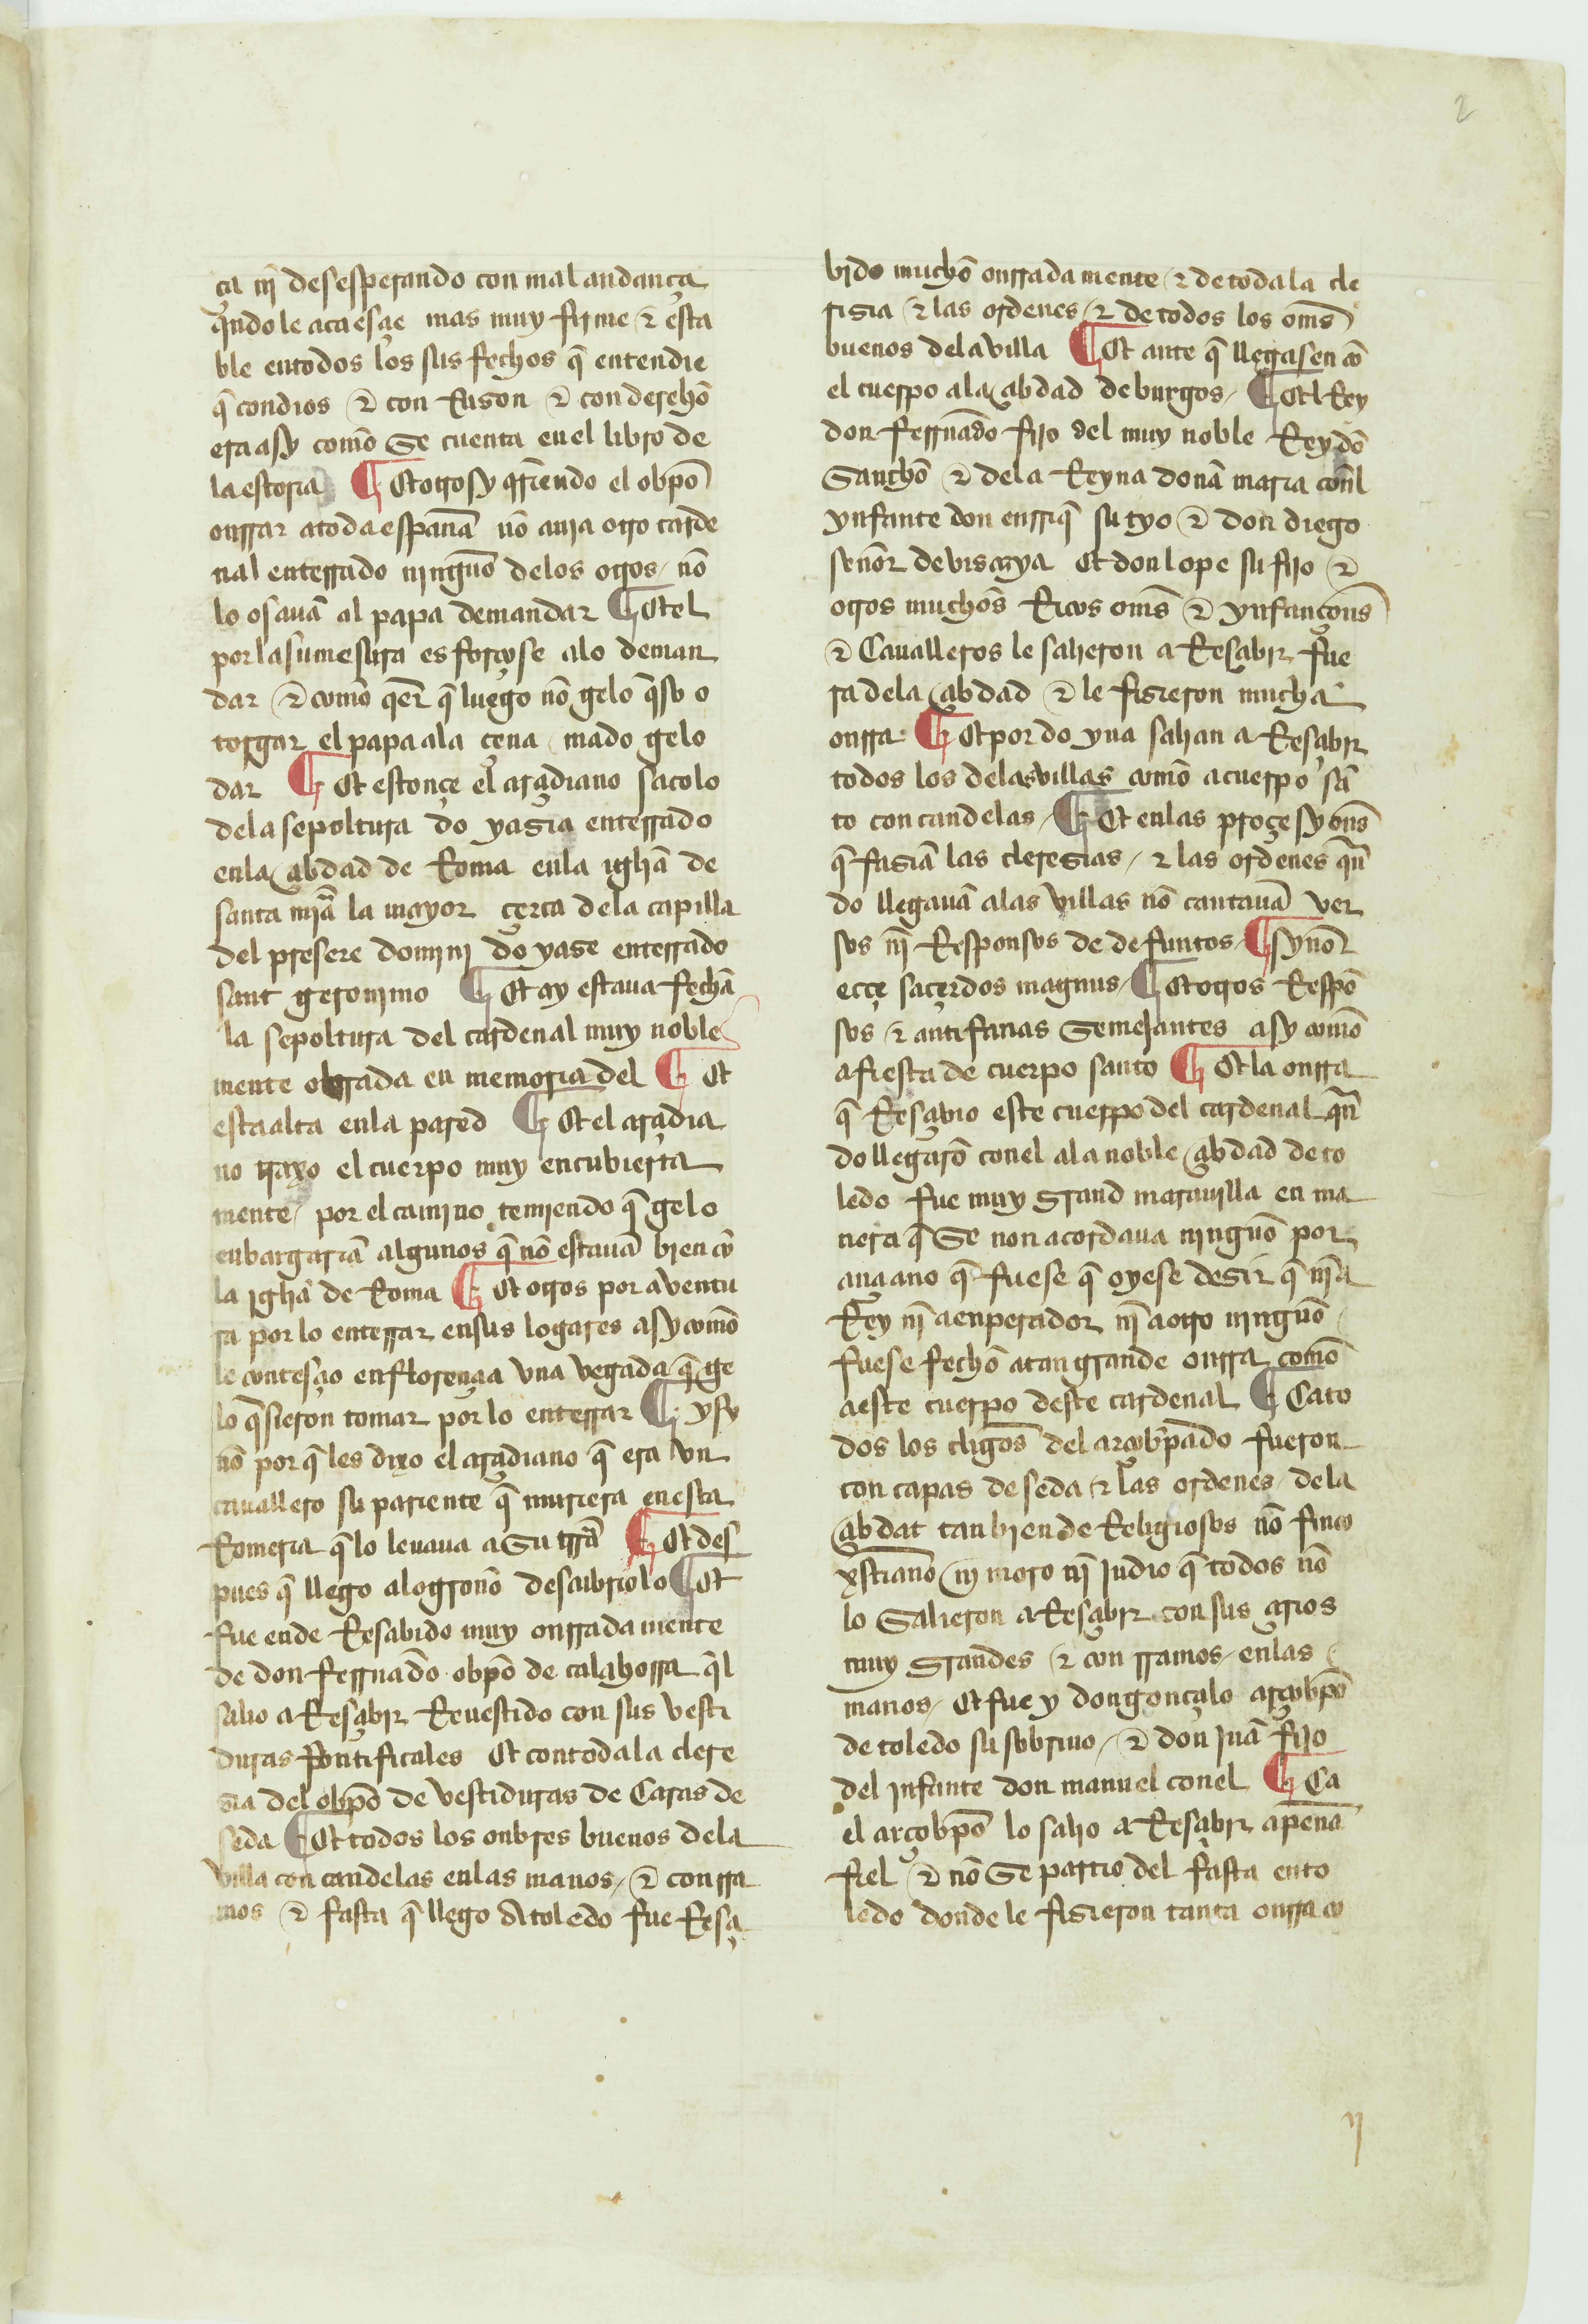 2
ça nĩ desesperando con mal andança
qñdo le acaesçe mas muy firme & esta
ble en todos los sus fechos q̃ entendie
q̃ con dios & con Rason & con derechõ
era asy comõ se cuenta en el libro de
la estoria ¶ Et otrosy q̃riendo el obpõ
onrrar a toda españã nõ auia otro carde
nal enterrado ningunõ de los otros / nõ
lo osauã al papa demandar ¶ Et el
por la su mesura esforços se a lo deman
dar & comõ q̃er q̃ luego nõ gelo q̃so o
torgar el papa a la çena mãdo gelo
dar ¶ Et estonçe el arçidiano saco lo
de la sepoltura do yasia enterrado
en la çibdad de Roma en la iglẽia de
santa mĩa la mayor çerca de la capilla
del presepe domini do yase enterrado
sant geronimo ¶ Et ay estaua fechã
la sepoltura del cardenal muy noble
mente obrada en memoria del ¶ Et
esta alta en la pared ¶ Et el arçidia
no traxo el cuerpo muy encubierta
mente / por el camino temiendo q̃ gelo
enbargariã algunos q̃ nõ estauã bien cõ
la iglẽia de Roma ¶ Et otros por auentu
ra por lo enterrar en sus logares asy comõ
le contesçio en florençia vna vegada q̃ ge
lo q̃sieron tomar por lo enterrar ¶ Sy
nõ por q̃ les dixo el arçidiano q̃ era vn
cauallero su pariente q̃ muriera en esta
Romeria q̃ lo leuaua a su trrã ¶ Et des
pues q̃ llego a logroñõ descubriolo ¶ Et
fue ende Resçibido muy onrrada mente
de don ferrnãdo obpõ de calahorra q̃l
salio a Resçebir Reuestido con sus vesti
duras Pontificales Et con toda la clere
sia del obpõ de vestiduras de Caras de
seda ¶ Et todos los onbres buenos de la
villa con candelas en las manos / & con rra
mos & fasta q̃ llego A toledo fue Resçi
bido muchõ onrrada mente & de toda la cle
risia & las ordenes / & de todos los omẽs
buenos de la villa ¶ Et ante q̃ llegasen cõ
el cuerpo a la çibdad de burgos / ¶ Et el Rey
don ferrnãdo fijo del muy noble Rey dõ
Sanchõ & de la Reyna donã maria cõnl
ynfante don enrriq̃ su tyo & don diego
senõr de viscaya Et don lope su fijo &
otros muchõs Ricos omẽs & ynfançonẽs
& Caualleros le salieron a Resçebir fue
ra de la çibdad & le fisieron mucha
onrra ¶ Et por do yua salian a Resçebir
todos los de las villas comõ a cuerpo sã
to con candelas / ¶ Et en las proçesyonẽs
q̃ fasiã las cleresias / & las ordenes q̃n
do llegauã a las villas nõ cantauã ver
sos nĩ Responsos de defuntos / ¶ Synõ
ecçe saçerdos magnus / ¶ Et otros Respõ
sos & antifanas Semejantes asy comõ
a fiesta de cuerpo santo ¶ Et la onrra
q̃ Resçibio este cuerpo del cardenal q̃n
do llegarõ con el a la noble çibdad de to
ledo fue muy grand marauilla en ma
nera q̃ Se non acordaua ningunõ por
ançiano q̃ fuese q̃ oyese desir q̃ nĩ a
Rey nĩ a enperador nĩ a otro ningunõ /
fuese fechõ atan grande onrra comõ
a este cuerpo deste cardenal ¶ Ca to
dos los cligos̃ del arçobpãdo fueron
con capas de seda & las ordenes / de la
çibdat tan bien de Religiosos nõ finco
xp̃stianõ nĩ moro nĩ Judio q̃ todos nõ
lo Salieron a Resçebir con sus çirios
muy grandes & con rramos / en las
manos / Et fue y don gonçalo arçobpõ
de toledo su sobrino / & don Juã fijo
del Infante don manuel con el ¶ Ca
el arçobpõ lo salio a Resçebir a penã
fiel & nõ Se partio del fasta en to
ledo donde le fisieron tanta onrra co
ij